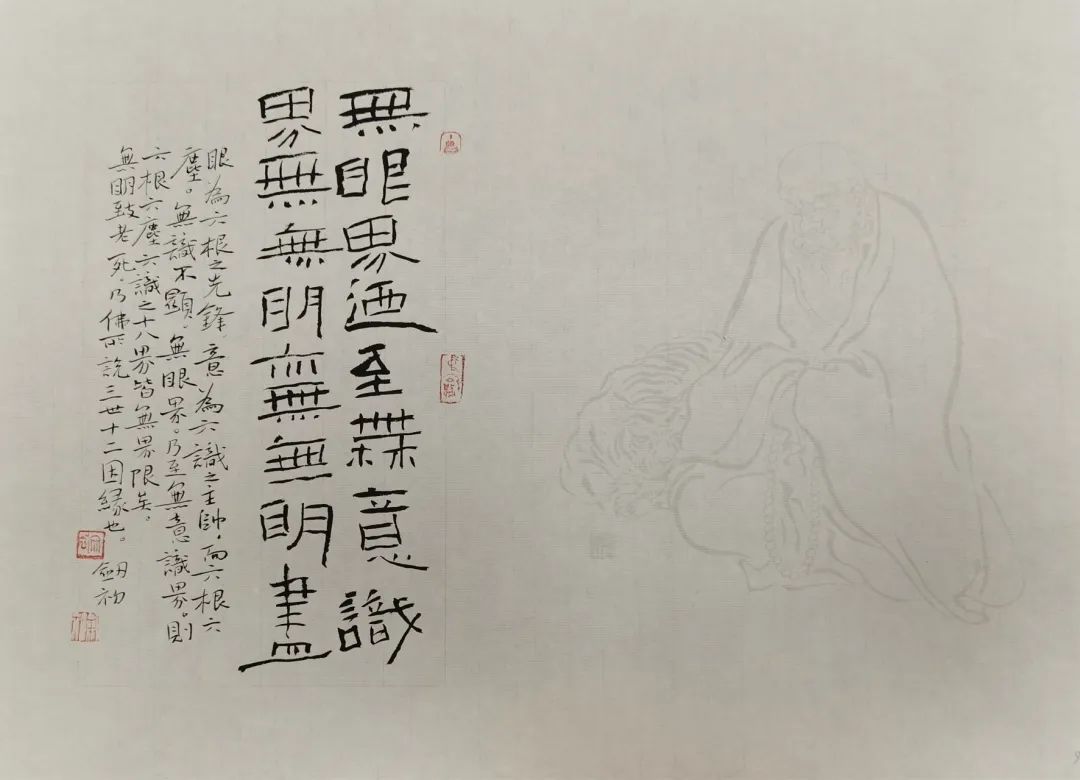 無眼界迺至無意識
界無無明亦無無明盡
眼為六根之先鋒，意為六識之主帥，而六根六
塵。無識不顯。無眼界。乃至無意識界。則
六根六塵六識之十八界皆無界限矣。
無明致老死，乃佛所說三世十二因緣也。
劔初